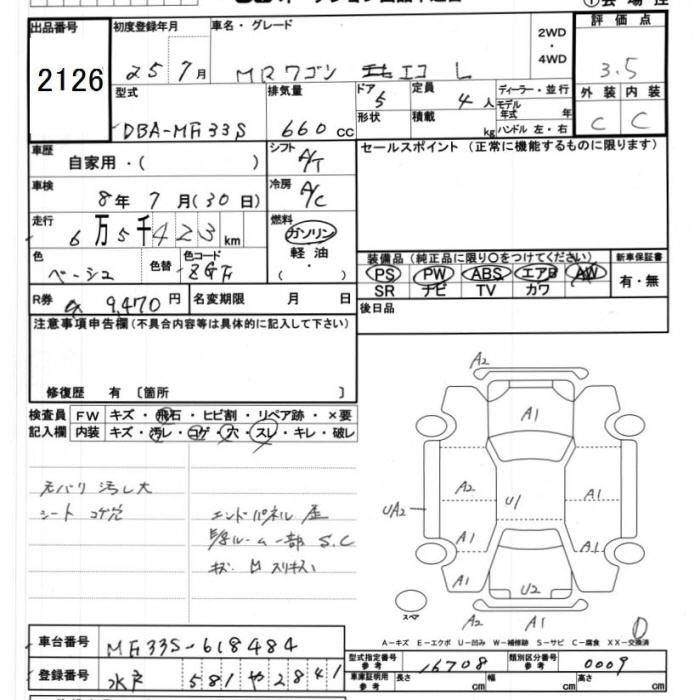 出品番号 初度登録年月 車名・グレード 2WD・4WD 評価点
2126 25 7月 MRワゴン エコ L 3.5
型式 排気量 ドア 5 定員 4人 ディーラー・並行 外装 内装
DBA-MF33S 660cc 形状 積載 kg モデル年式 年 ハンドル 左・右 C C
車歴 自家用・( ) シフト A/T セールスポイント (正常に機能するものに限ります)
車検 8年 7月(30日) 冷房 A/C
走行 6万5千423km 燃料 ガソリン 軽油・( )
色 ベージュ 色替 色コード ZGF
装備品 (純正品に限り〇をつけてください) 新車保証書
PS PW ABS エアB AW 有・無
SR ナビ TV カワ
R券 9,470円 名変期限 月 日 後日品
注意事項申告欄(不具合内容等は具体的に記入して下さい)
修復歴 有 〔箇所 〕
検査員 FW キズ・飛石・ヒビ割・リペア跡・×要
記入欄 内装 キズ・汚レ・コゲ・穴・スレ・キレ・破レ
汚レ大
シート コゲ穴
エンドパネル
ルーム一部 S.C
キズ スリキズ
A2
A1
A2 U1 A1
UA2
A1 A1
A1 U2 A1
スペア A2 A1
A-キズ E-エクボ U-凹み W-補修跡 S-サビ C-腐食 XX-交換済
車台番号 MF33S-618484
登録番号 水戸 581 や 2841
型式指定番号 参考 16708 類別区分番号 参考 0009
車庫証明用 参考 長さ cm 幅 cm 高さ cm